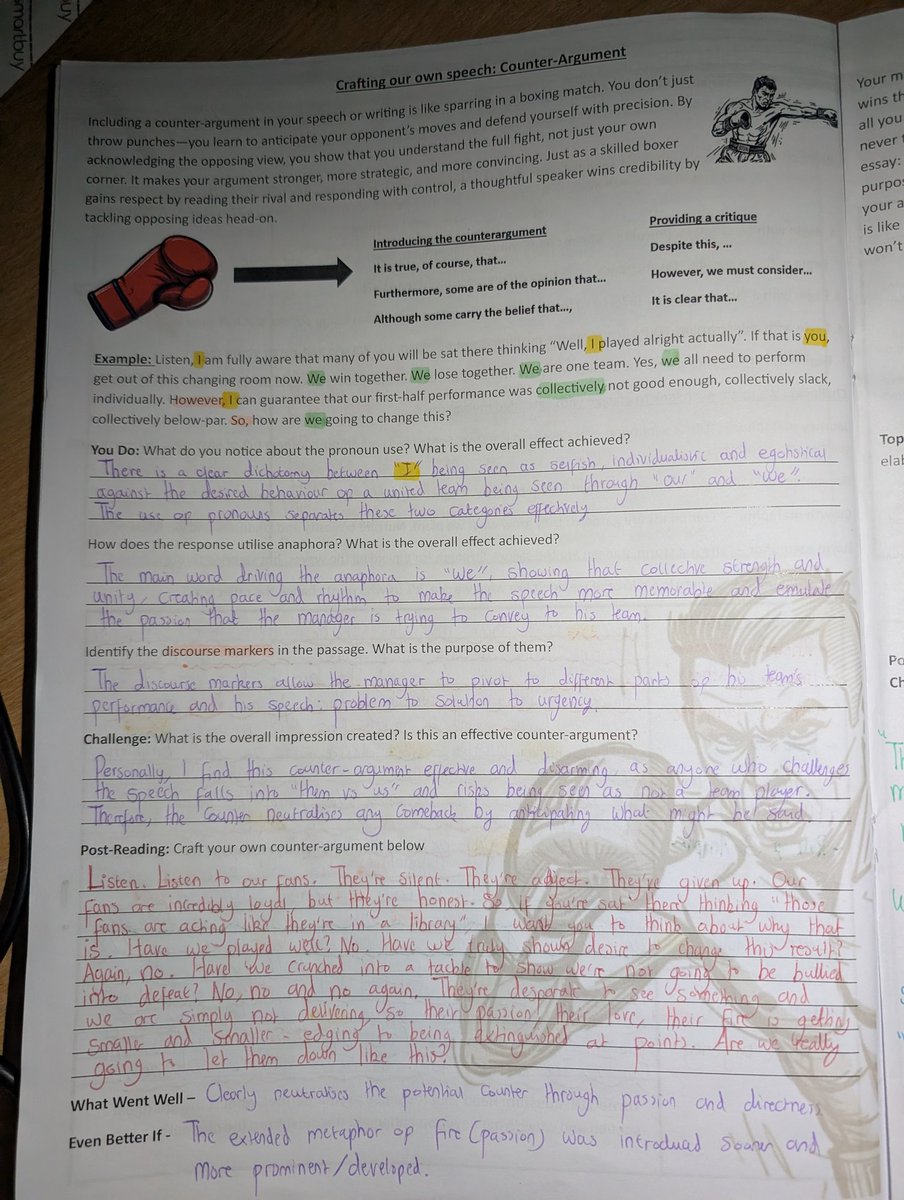 smartbuy
uy
Crafting our own speech: Counter-Argument
Including a counter-argument in your speech or writing is like sparring in a boxing match. You don’t just
throw punches—you learn to anticipate your opponent’s moves and defend yourself with precision. By
acknowledging the opposing view, you show that you understand the full fight, not just your own
corner. It makes your argument stronger, more strategic, and more convincing. Just as a skilled boxer
gains respect by reading their rival and responding with control, a thoughtful speaker wins credibility by
tackling opposing ideas head-on.
Introducing the counterargument
It is true, of course, that...
Furthermore, some are of the opinion that...
Although some carry the belief that...,
Providing a critique
Despite this, ...
However, we must consider...
It is clear that...
Example: Listen, I am fully aware that many of you will be sat there thinking “Well, I played alright actually”. If that is you,
get out of this changing room now. We win together. We lose together. We are one team. Yes, we all need to perform
individually. However, I can guarantee that our first-half performance was collectively not good enough, collectively slack,
collectively below-par. So, how are we going to change this?
You Do: What do you notice about the pronoun use? What is the overall effect achieved?
There is a clear dichotomy between "I" being seen as selfish, individualistic and egotistical
against the desired behaviour of a united team being seen through "our" and "we".
The use of pronouns separates these two categories effectively
How does the response utilise anaphora? What is the overall effect achieved?
The main word driving the anaphora is "we", showing that collective strength and
unity, creating pace and rhythm to make the speech more memorable and emulate
the passion that the manager is trying to convey to his team.
Identify the discourse markers in the passage. What is the purpose of them?
The discourse markers allow the manager to pivot to different parts of his team's
performance and his speech: problem to solution to urgency.
Challenge: What is the overall impression created? Is this an effective counter-argument?
Personally, I find this counter-argument effective and disarming, as anyone who challenges
the speech falls into "them vs us" and risks being seen as not a team player.
Therefore, the counter neutralises any comeback by anticipating what might be said.
Post-Reading: Craft your own counter-argument below
Listen. Listen to our fans. They're silent. They're abject. They're given up. Our
fans are incredibly loyal, but they're honest. So if you're sat there thinking "those
fans are acting like they're in a library" I want you to think about why that
is. Have we played well? No. Have we truly shown desire to change this result?
Again, no. Have we crunched into a tackle to show we're not going to be bullied
into defeat? No, no and no again. They're desperate to see something and
we are simply not delivering, so their passion, their love, their fire is getting
smaller and smaller - edging to being extinguished at points. Are we really
going to let them down like this?
What Went Well – Clearly neutralises the potential counter through passion and directness
Even Better If - The extended metaphor of fire (passion) was introduced sooner and
more prominent/developed.
Your m
wins th
all you
never t
essay:
purpos
your a
is like
won't
Top
elab
Po
Ch